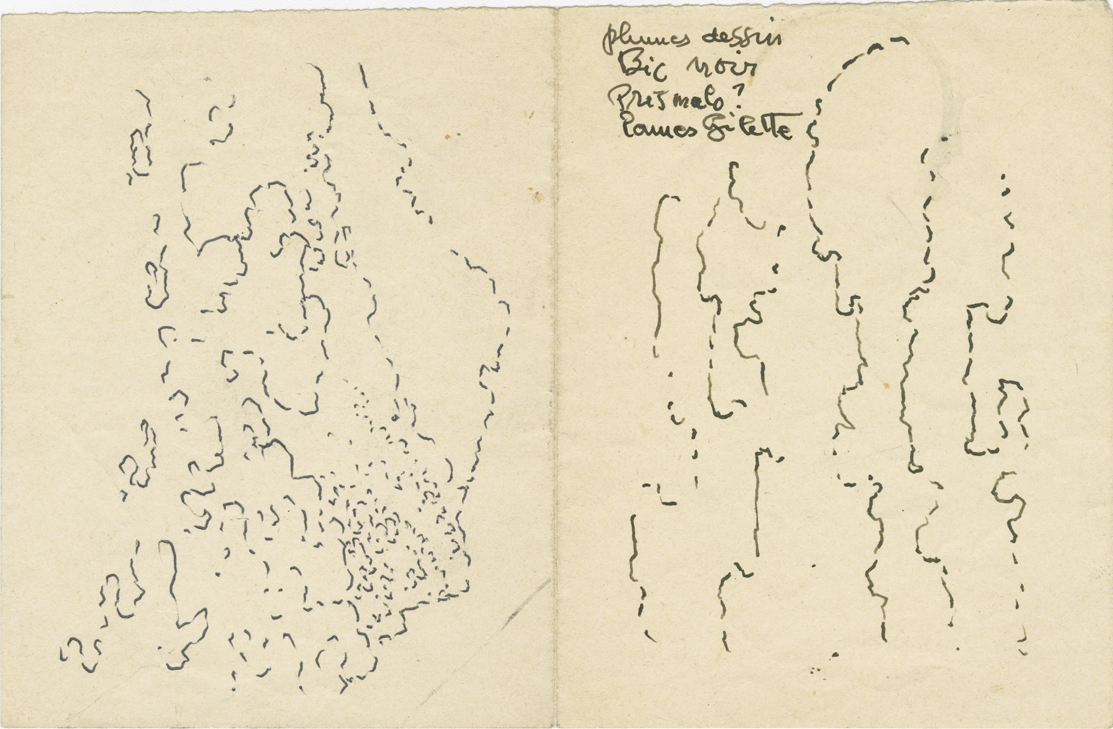 plumes dessin
Bic noir
Prismalo?
Lames Gilette